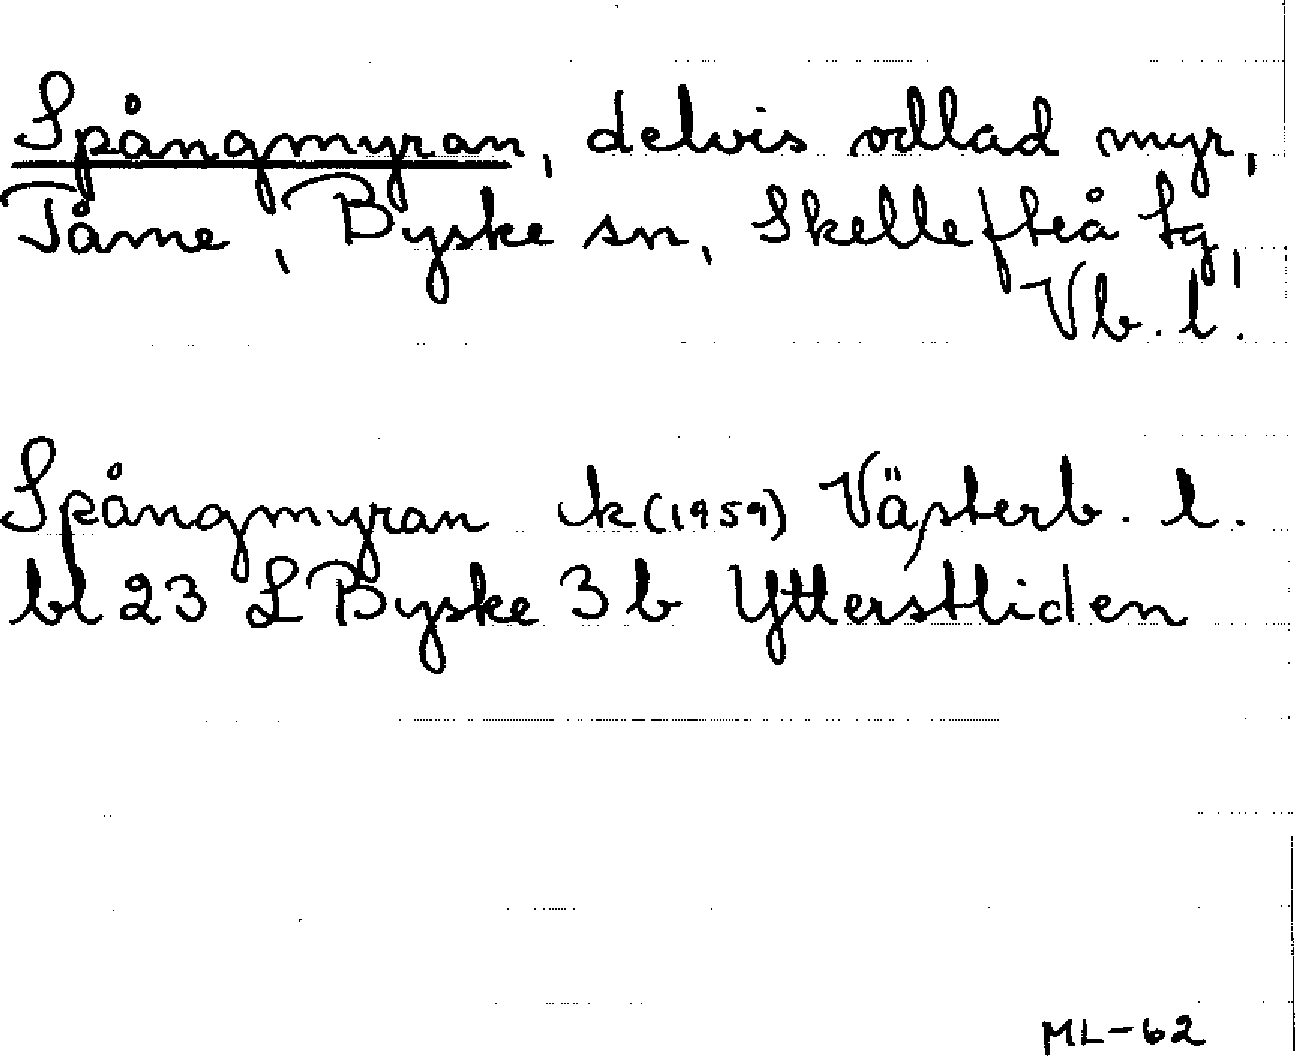 Spångmyran, delvis odlad myr,
Tåme, Byske sn, Skellefteå tg,
Vb. l.
Spångmyran k (1959) Västerb. l.
bl 23 L Byske 3 b Ytterstliden
ML-62